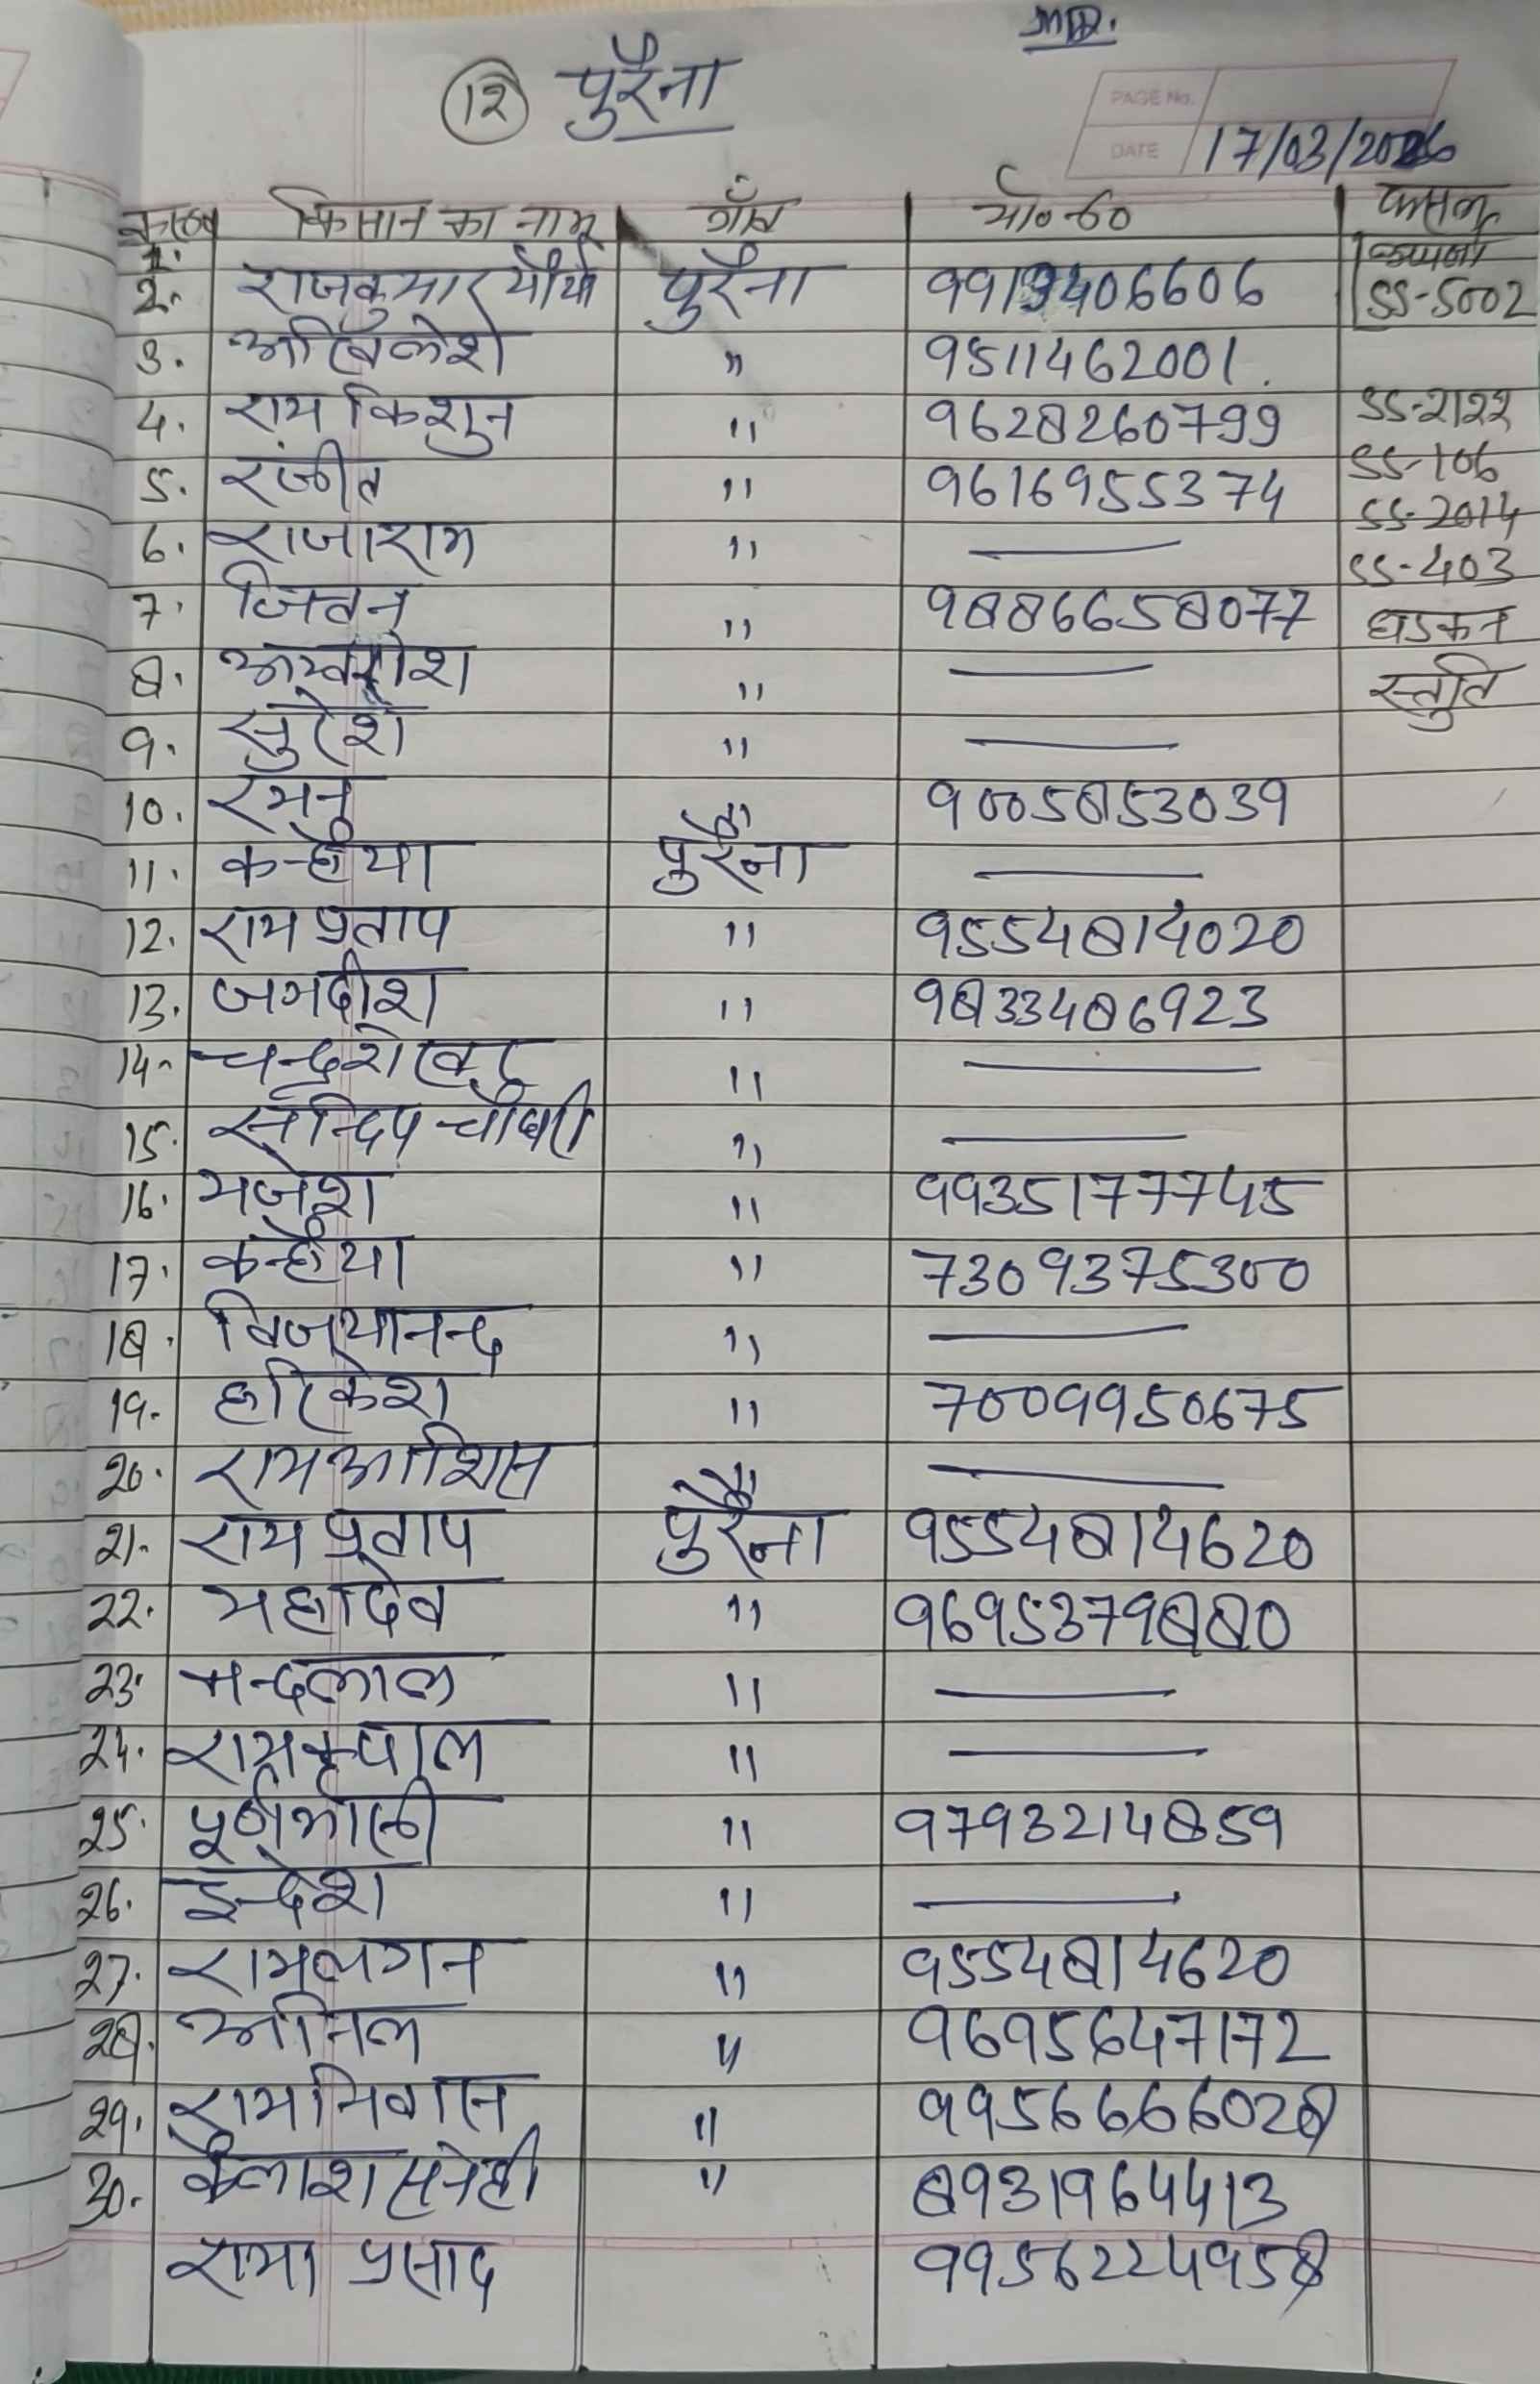 १२ पुरैना
PAGE No.
DATE 17/03/2026
किसान का नाम गाँव मो० न० फसल
1.
2. राजकुमार मौर्या पुरैना 9919406606 SS-5002
3. अखिलेश " 9511462001.
4. राम किशुन " 9628260799 SS-2122
5. रंजीत " 9616955374 SS-106
6. राजाराम " — SS-2014
SS-403
7. जितन " 9886658077 धड़कन
8. " — स्तुति
9. सुरेश " —
10. रमन " 9005853039
11. कन्हैया पुरैना —
12. राम प्रताप " 9554814020
13. जगदीश " 9833486923
14. चन्द्रशेखर " —
15. सन्दिप चौधरी " —
16. " 9935177745
17. कन्हैया " 7309375300
18. विजयानन्द " —
19. हरिकेश " 70099950675
20. रामआशिस " —
21. राम प्रताप पुरैना 9554814620
22. महादेव " 9695379880
23. नन्दलाल " —
24. रामकृपाल " —
25. पूर्णमासी " 9793214859
26. इन्देश " —
27. रामलगन " 9554814620
28. अनिल " 9695647172
29. रामनिवास " 9956666028
30. कैलाश सनेही " 8931964413
रामा प्रसाद 9956224958